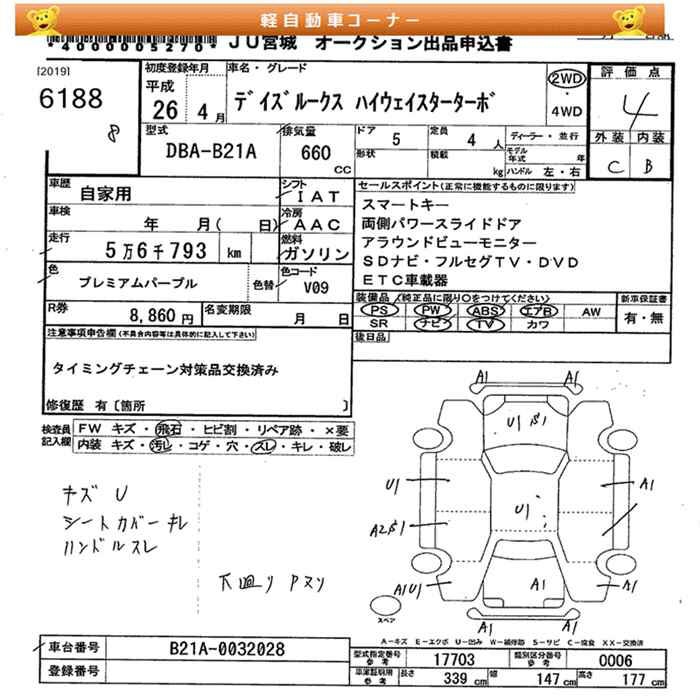 軽自動車コーナー
*4000005270* JU宮城 オークション出品申込書
[2019]
6188
8
初度登録年月
平成 26 年 4 月
車名・グレード
デイズルークス ハイウェイスターターボ
2WD
・
4WD
評価点
4
外装 内装
C B
型式
DBA-B21A
排気量
660 cc
ドア 5
形状
定員 4 人
積載 kg
ディーラー・並行
モデル年式 年
ハンドル 左・右
車歴 自家用
シフト IAT
車検 年 月( 日)
冷房 AAC
走行 5万6千793 km
燃料 ガソリン
色 プレミアムパープル
色替
色コード V09
R券 8,860円
名変期限 月 日
セールスポイント(正常に機能するものに限ります)
スマートキー
両側パワースライドドア
アラウンドビューモニター
SDナビ・フルセグTV・DVD
ETC車載器
装備品 (純正品に限り○をつけてください)
PS PW ABS エアB AW
SR ナビ TV カワ
新車保証書
有・無
後日品
注意事項申告欄(不具合内容等は具体的に記入して下さい)
タイミングチェーン対策品交換済み
修復歴 有〔箇所 〕
検査員記入欄
FW キズ・飛石・ヒビ割・リペア跡・×要
内装 キズ・汚レ・コゲ・穴・スレ・キレ・破レ
キズ U
シートカバーキレ
ハンドルスレ
下廻り アヌリ
A1 A1
U1 キ1
U1 A1
U1
A2キ1
A1U U1 A1 A1
A1 A1
スペア
A-キズ E-エクボ U-凹み W-補修跡 S-サビ C-腐食 XX-交換済
車台番号 B21A-0032028
登録番号
型式指定番号 参考 17703
類別区分番号 参考 0006
車庫証明用 参考 長さ 339 cm 幅 147 cm 高さ 177 cm